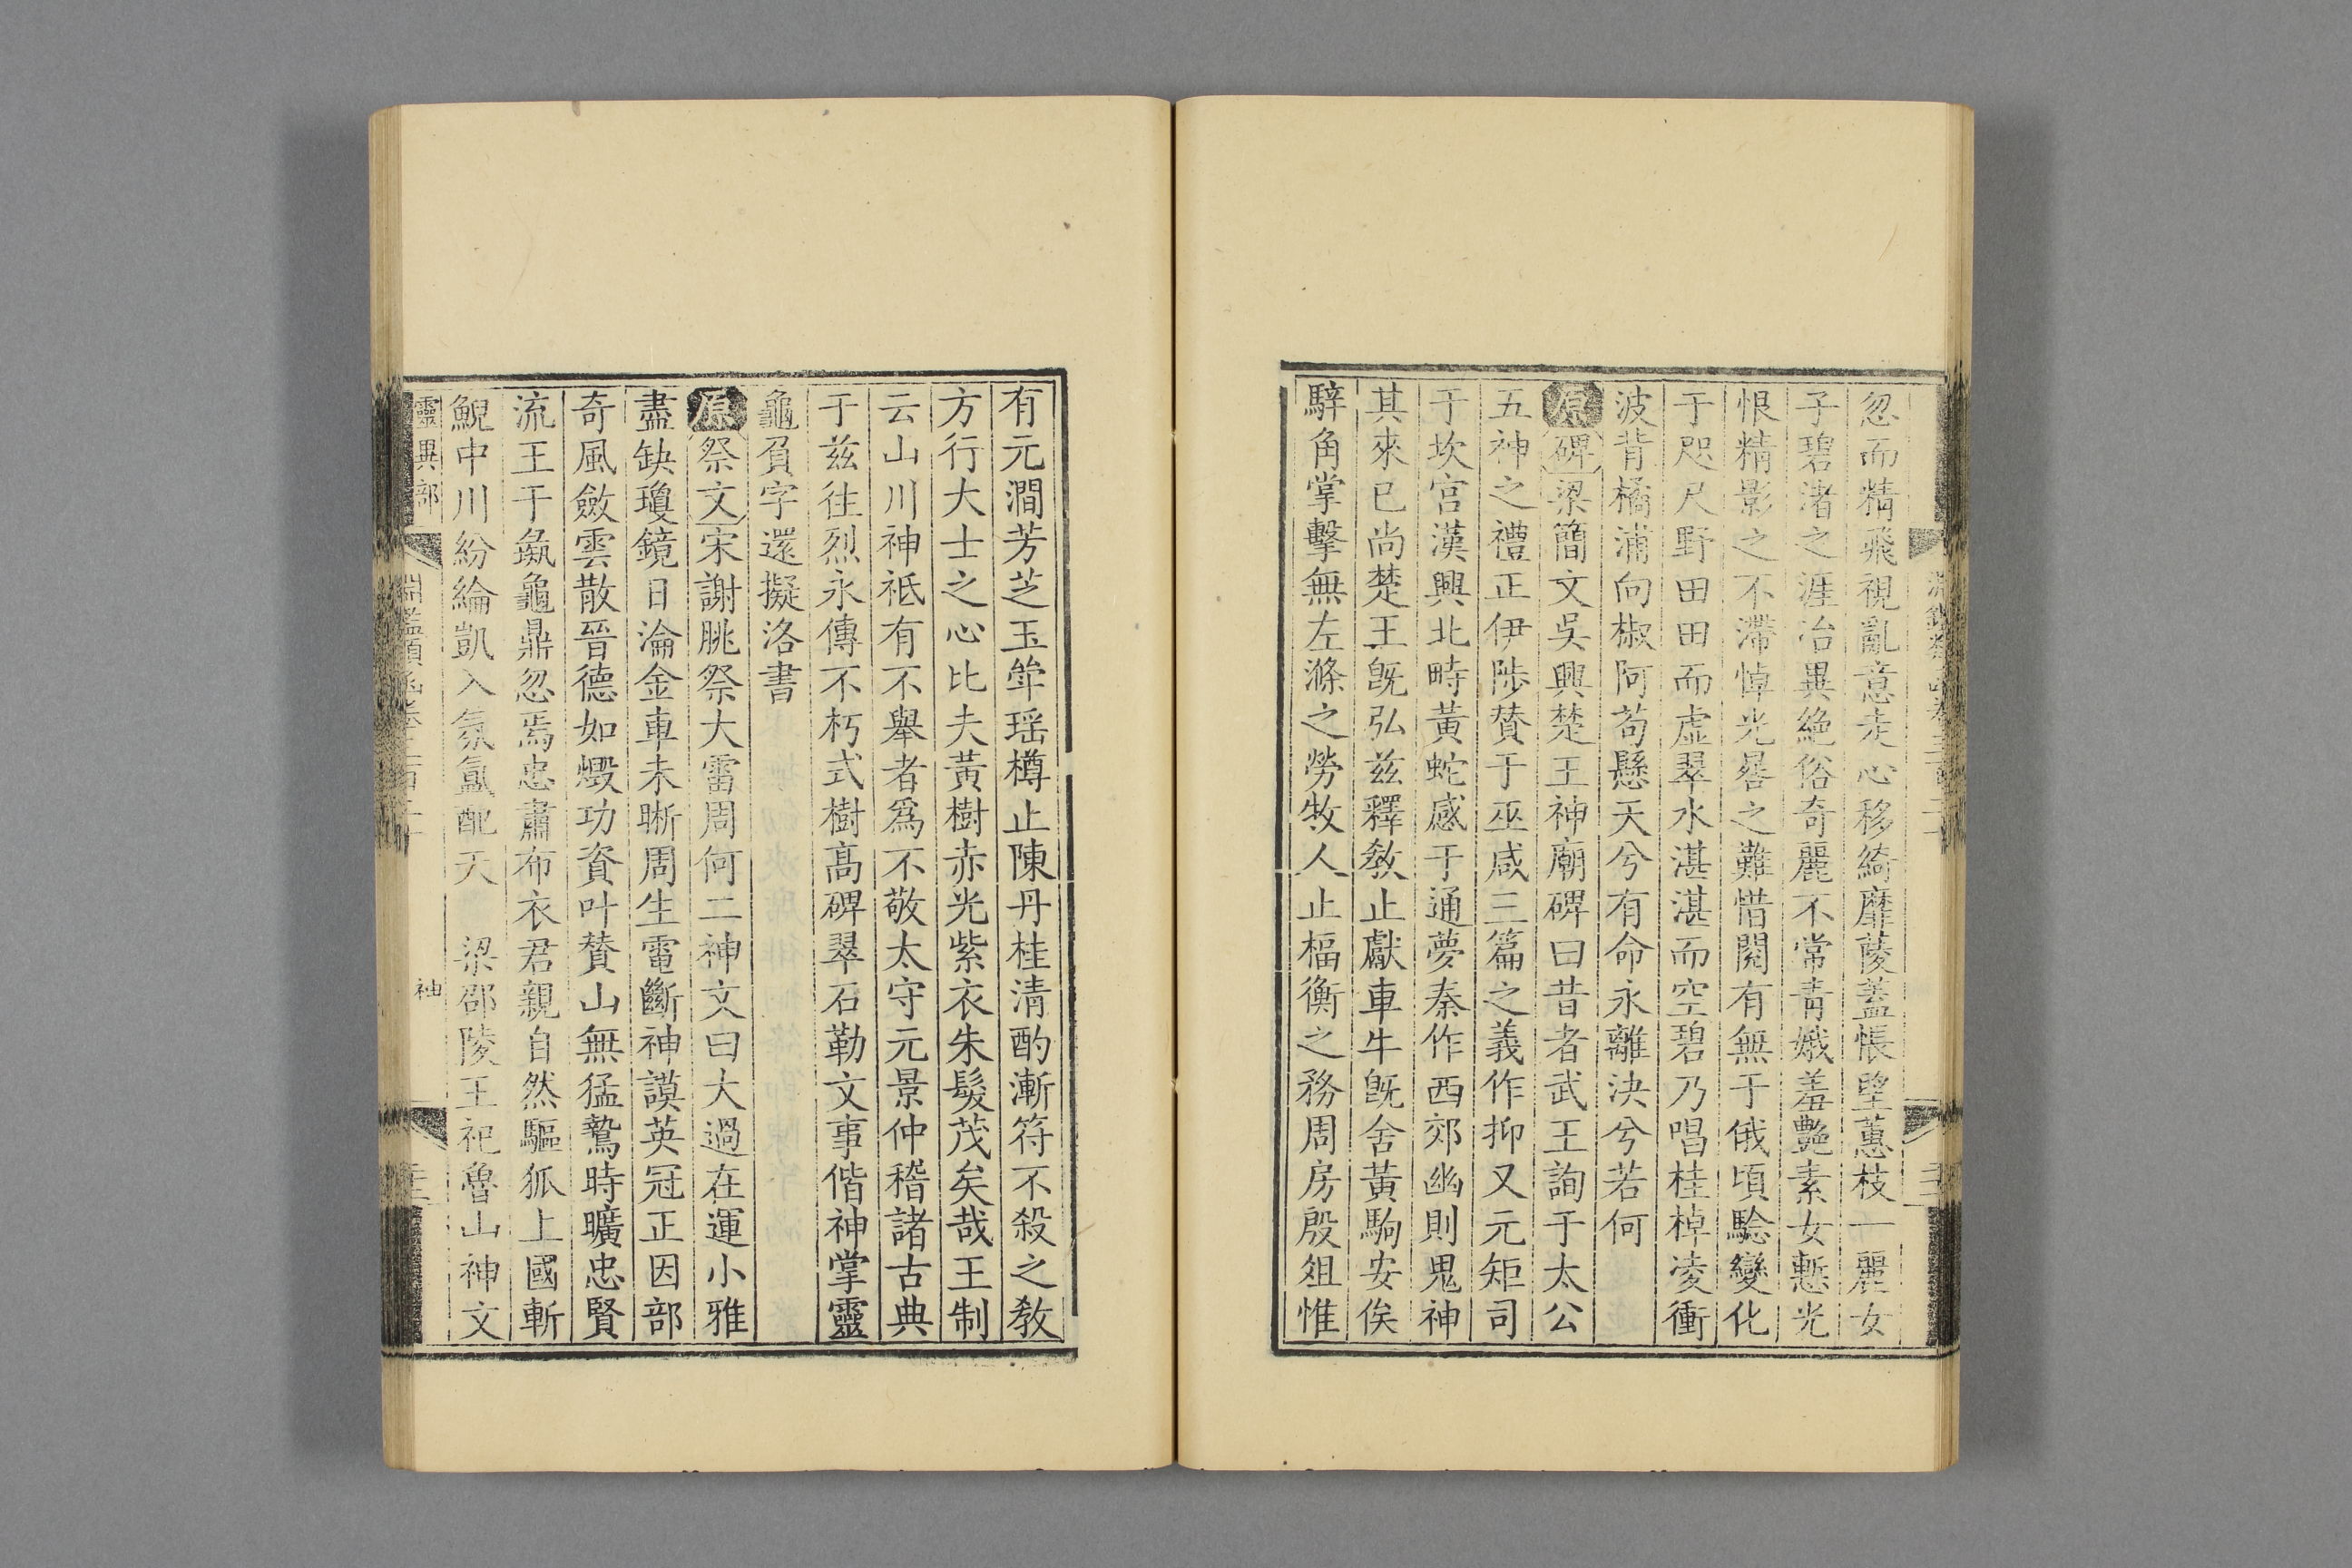 忽而精飛視亂意走心移綺靡蔆蓋悵望蕙枝一麗女
子碧渚之涯冶異絶俗奇麗不常青娥羞艷素女慙光
恨精影之不滯悼光晷之難惜閱有無于俄頃驗變化
于咫尺野田田而虛翠水湛湛而空碧乃唱桂棹凌衝
波背橘浦向椒阿苟懸天兮有命永離決兮若何
原碑梁簡文吳興楚王神廟碑曰昔者武王詢于太公
五神之禮正伊陟賛于巫咸三篇之義作抑又元矩司
于坎宮漢興北畤黃蛇感于通夢秦作西郊幽則鬼神
其來已尚楚王旣弘兹釋敎止獻車牛旣舍黃駒安俟
騂角掌擊無左滌之勞牧人止楅衡之務周房殷俎惟
有元澗芳芝玉斚瑶樽止陳丹桂清酌漸符不殺之敎
方行大士之心比夫黃樹赤光紫衣朱髮茂矣哉王制
云山川神祗有不舉者爲不敬太守元景仲稽諸古典
于兹往烈永傳不朽式樹高碑翠石勒文事偕神掌靈
龜負字還擬洛書
原祭文宋謝朓祭大雷周何二神文曰大過在運小雅
盡缺瓊鏡日淪金車未晣周生電斷神謨英冠正因部
奇風斂雲散晉德如燬功資叶賛山無猛鷙時曠忠賢
流王于彘龜鼎忽焉忠肅布衣君親自然驅狐上國斬
鯢中川紛綸凱入氛氳配天 梁邵陵王祀魯山神文
靈異部 淵鑑類函卷三百二十 神